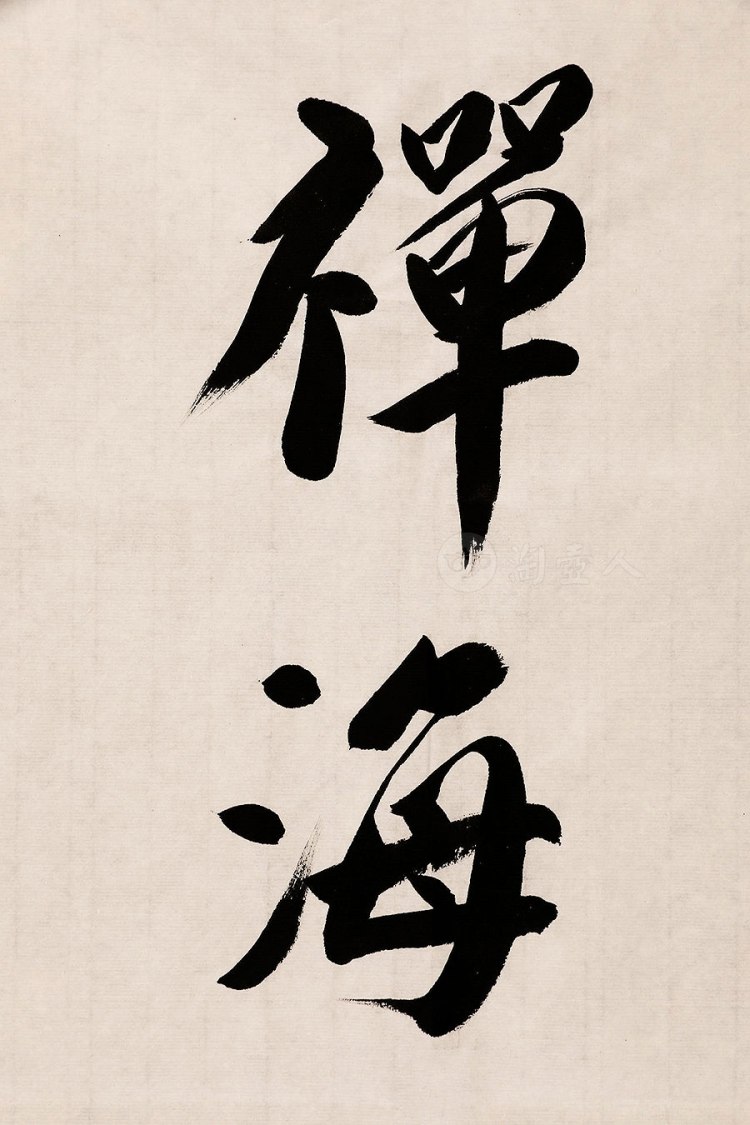 禪海
淘壺人